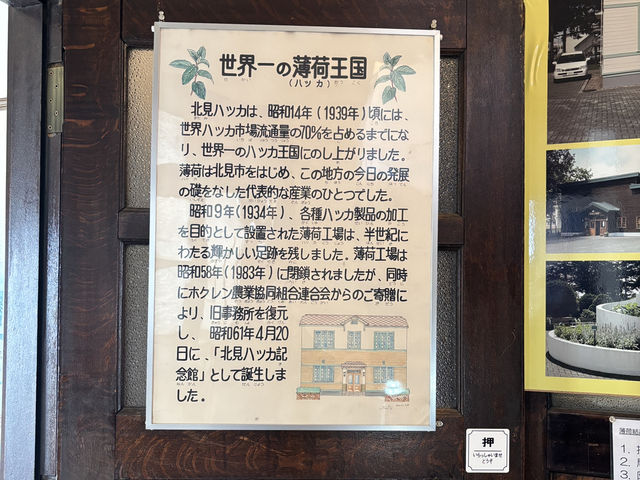 世界一の薄荷王国
(ハッカ)
北見ハッカは、昭和14年(1939年)頃には、
世界ハッカ市場流通量の70%を占めるまでにな
り、世界一のハッカ王国にのし上がりました。
薄荷は北見市をはじめ、この地方の今日の発展
の礎をなした代表的な産業のひとつでした。
昭和9年(1934年)、各種ハッカ製品の加工
を目的として設置された薄荷工場は、半世紀に
わたる輝かしい足跡を残しました。薄荷工場は
昭和58年(1983年)に閉鎖されましたが、同時
にホクレン農業協同組合連合会からのご寄贈に
より、旧事務所を復元
し、昭和61年4月20
日に、「北見ハッカ記
念館」として誕生しま
した。
押
いらっしゃいませ
どうぞ
1.
2.
3.